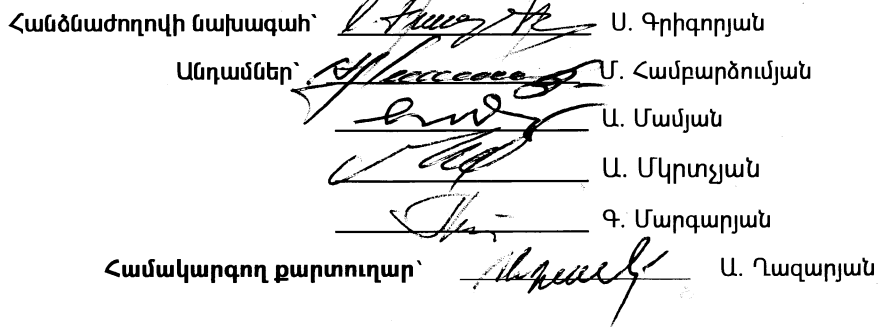 Հանձնաժողովի նախագահ՝ Ս. Գրիգորյան
Անդամներ՝ Մ. Համբարձումյան
Ա. Մամյան
Ա. Մկրտչյան
Գ. Մարգարյան
Համակարգող քարտուղար՝ Ա. Ղազարյան